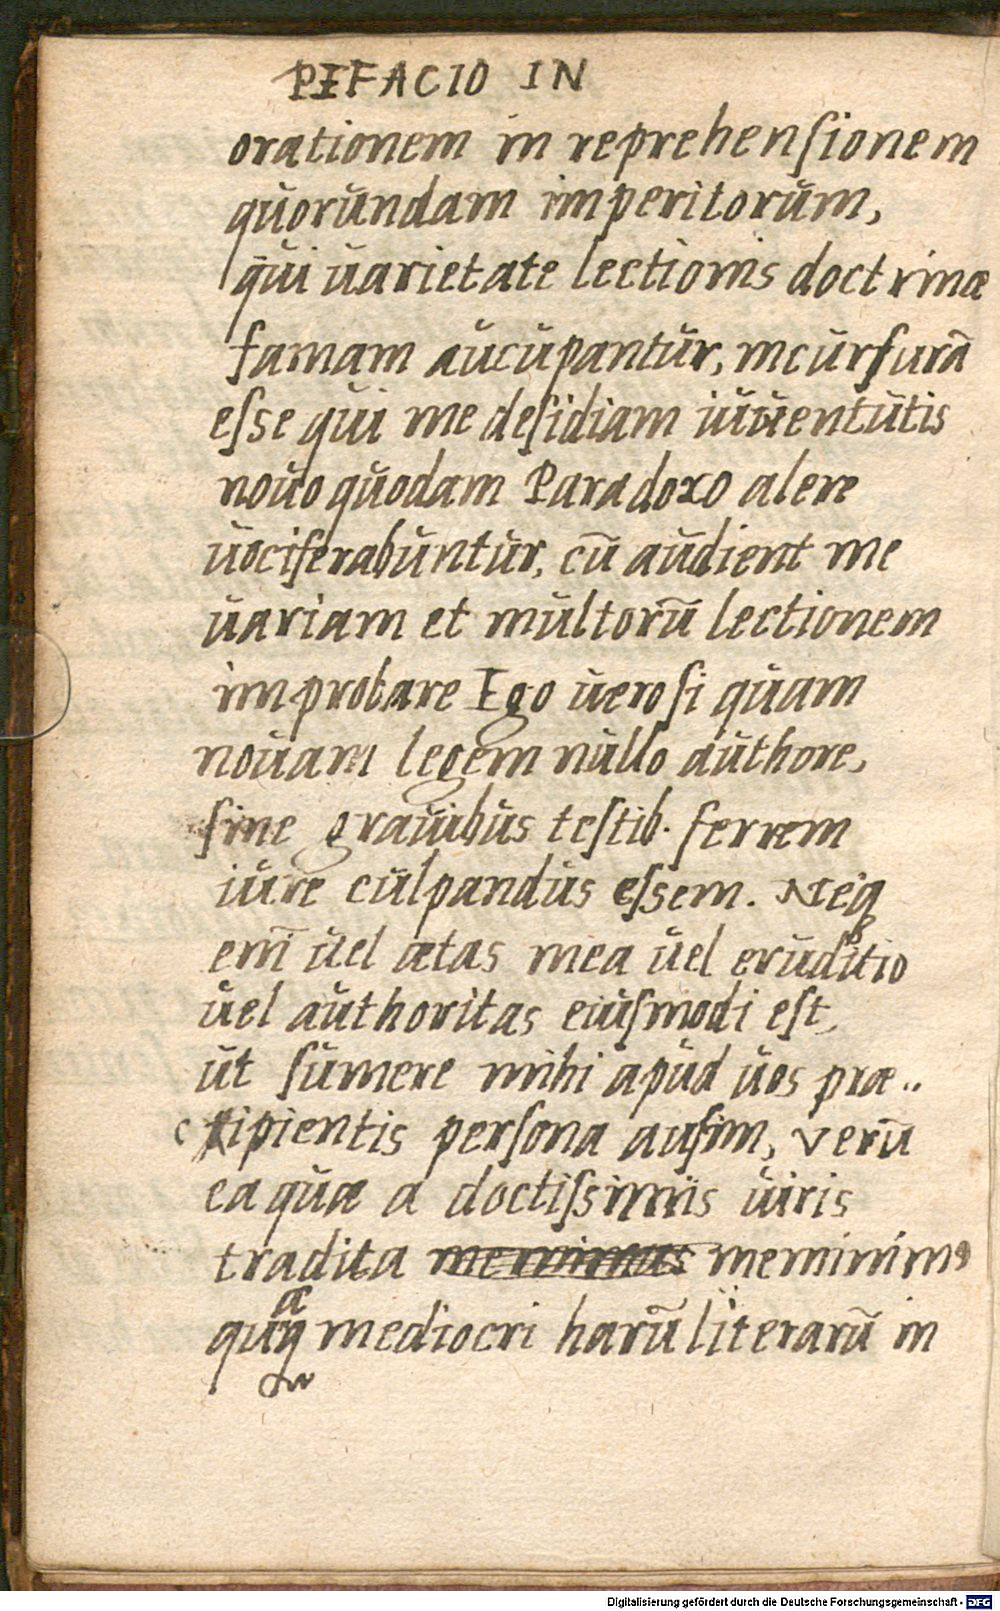 PEFACIO IN
orationem in reprehensionem
quorundam imperitorum,
qui uarietate lectionis doctrinæ
famam aucupantur, incursurā
esse qui me desidiam iuuentutis
nouo quodam Paradoxo alere
uociferabuntur, cū audient me
uariam et multorū lectionem
improbare Ego uero si quam
nouam legem nullo authore,
sine grauibus testib. ferrem
iure culpandus essem. Neq
em̄ uel ætas mea uel eruditio
uel authoritas eiusmodi est,
ut sumere mihi apud uos præ..
cipientis persona ausim, verū
ea quæ a doctissimis uiris
tradita meminimus meminimꝰ
quq mediocri harū literarū in
a
Digitalisierung gefördert durch die Deutsche Forschungsgemeinschaft - DFG